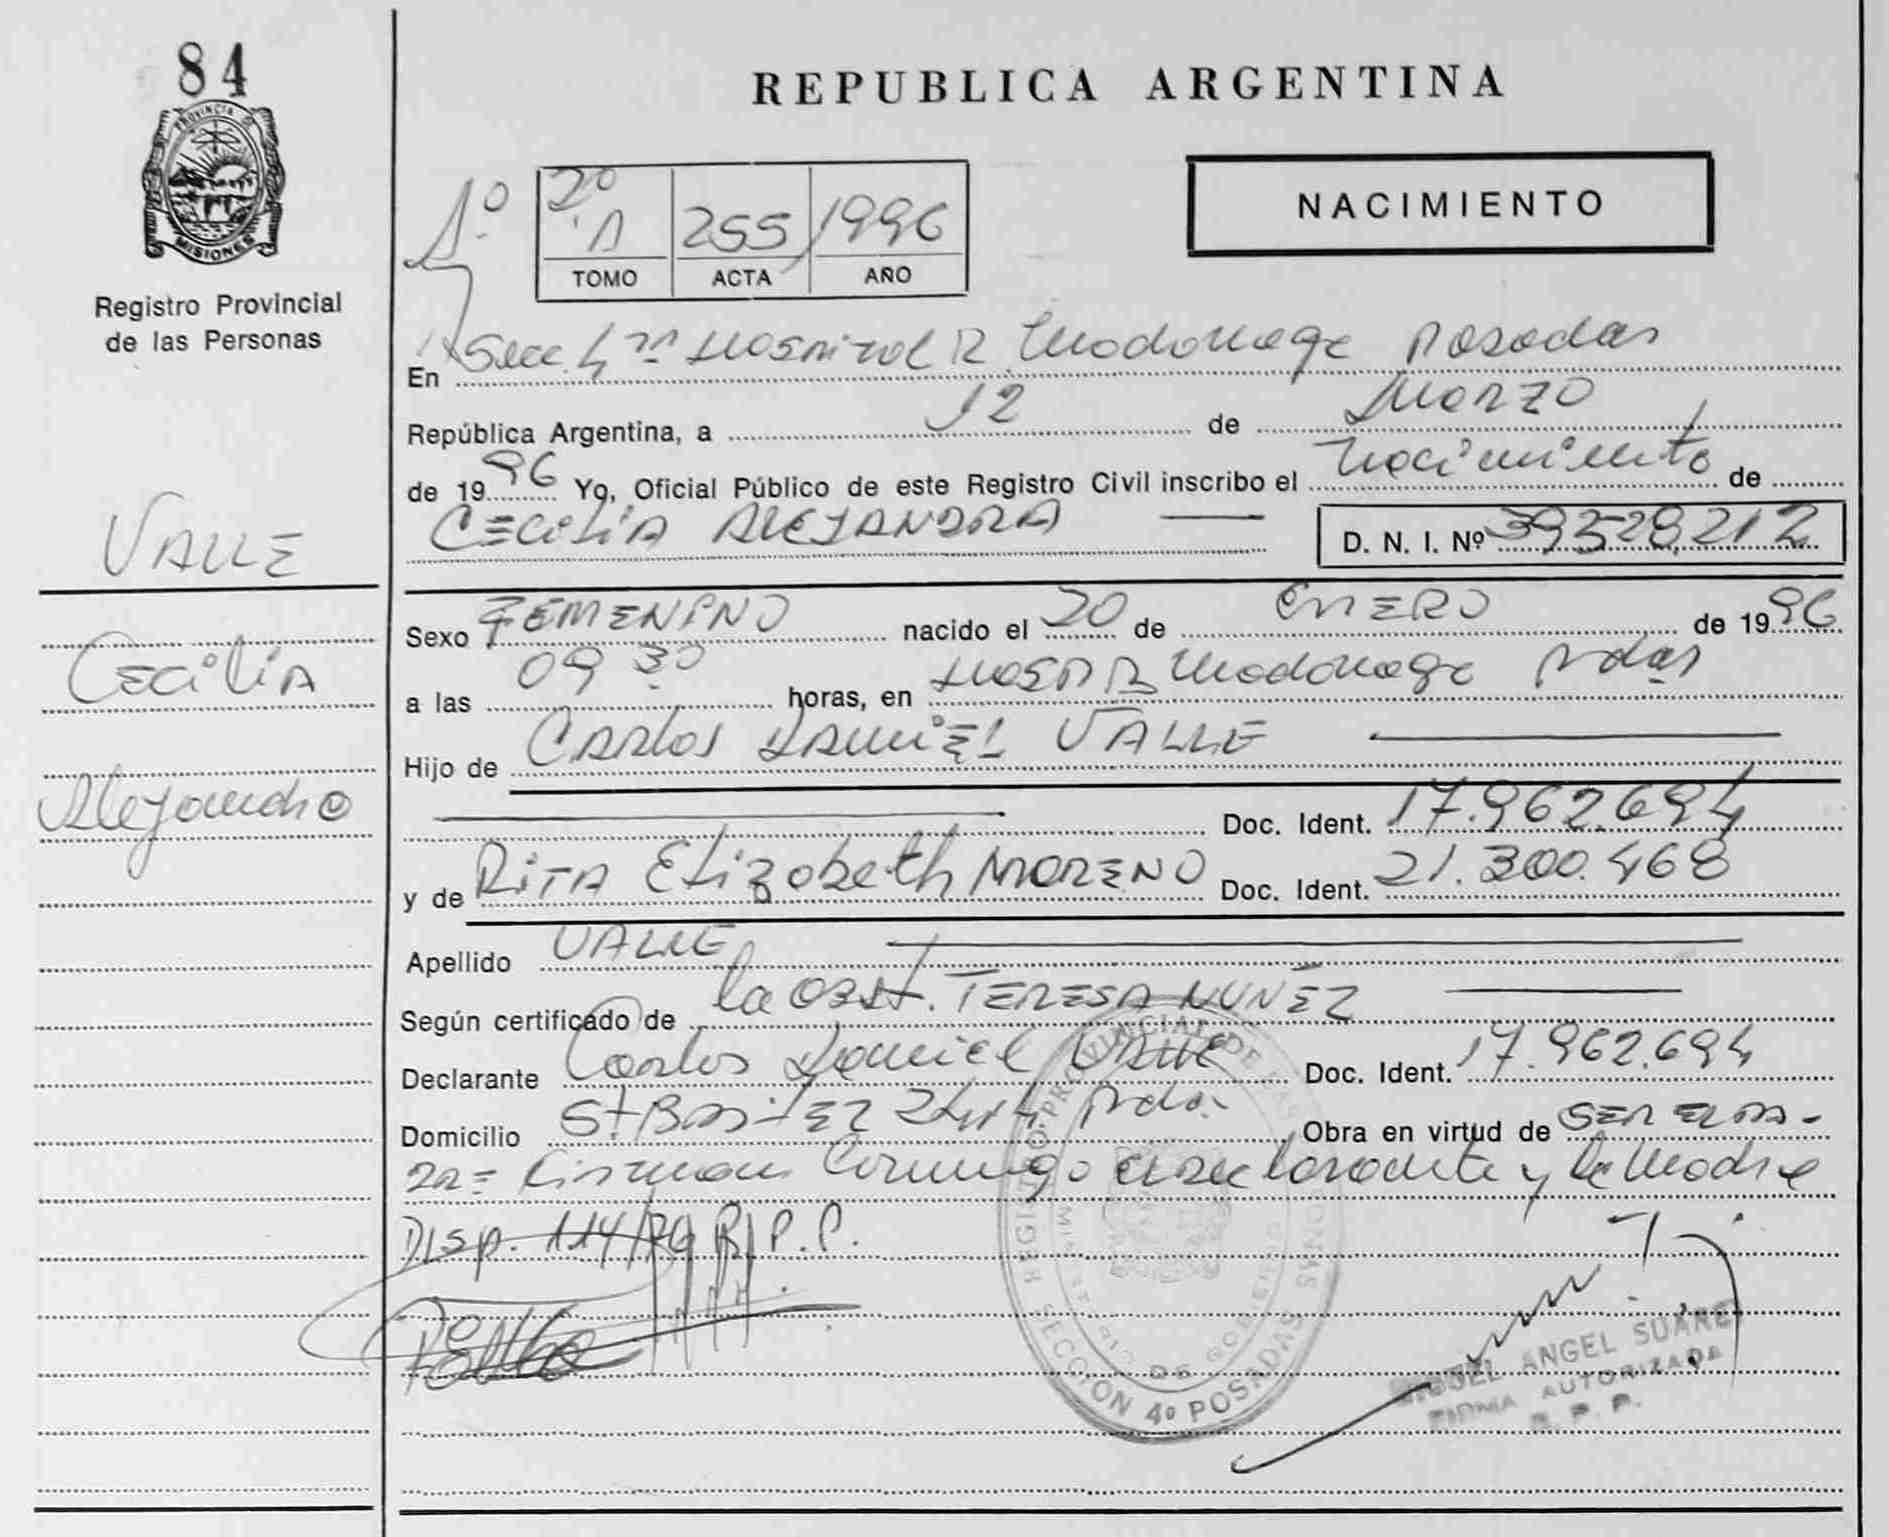 84
PROVINCIA DE
MISIONES
Registro Provincial
de las Personas
VALLE
Cecilia
Alejandra
REPUBLICA ARGENTINA
NACIMIENTO
1º
2º
A 255 1996
TOMO ACTA AÑO
En Secc. 4ta Hospital R. Madariaga Posadas
República Argentina, a 12 de Marzo
de 1996 Yo, Oficial Público de este Registro Civil inscribo el Nacimiento de
CECILIA ALEJANDRA
D. N. I. Nº 39.528.212
Sexo FEMENINO nacido el 20 de ENERO de 1996
a las 09 30 horas, en Hosp R Madariaga Pdas
Hijo de Carlos DANIEL VALLE
Doc. Ident. 17.962.694
y de RITA Elizabeth MORENO Doc. Ident. 21.300.468
Apellido VALLE
Según certificado de la Obst. TERESA NUÑEZ
Declarante Carlos Daniel VALLE Doc. Ident. 17.962.694
Domicilio Pdas. Obra en virtud de SER EL PA-
DRE= Firman Conmigo el declarante y la Madre
Disp. 114/79 R.P.P.
REGISTRO PROVINCIAL DE LAS PERSONAS
MINISTERIO DE GOBIERNO
SECCION 4º POSADAS
MIGUEL ANGEL SUAREZ
FIRMA AUTORIZADA
R. P. P.